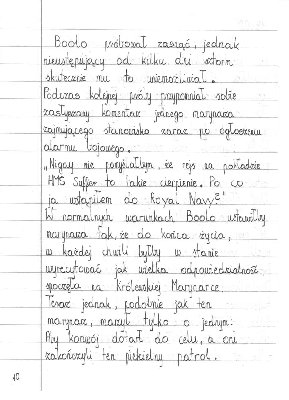 Bobo próbował zasnąć, jednak
nieustępujący od kilku dni sztorm
skutecznie mu to uniemożliwiał.
Podczas kolejnej próby przypomniał sobie
zasłyszany komentarz jednego marynarza
zajmującego stanowisko zaraz po ogłoszeniu
alarmu bojowego.
„Nigdy nie pomyślałbym, że rejs na pokładzie
HMS to takie cierpienie. Po co
ja wstąpiłem do Royal Navy?"
W normalnych warunkach Bobo ustawiłby
marynarza tak, że do końca życia,
w każdej chwili byłby w stanie
wyrecytować jak wielka odpowiedzialność
spoczęła na Królewskiej Marynarce.
Teraz jednak, podobnie jak ten
marynarz, marzył tylko o jednym:
Aby konwój dotarł do celu, a oni
zakończyli ten piekielny patrol.